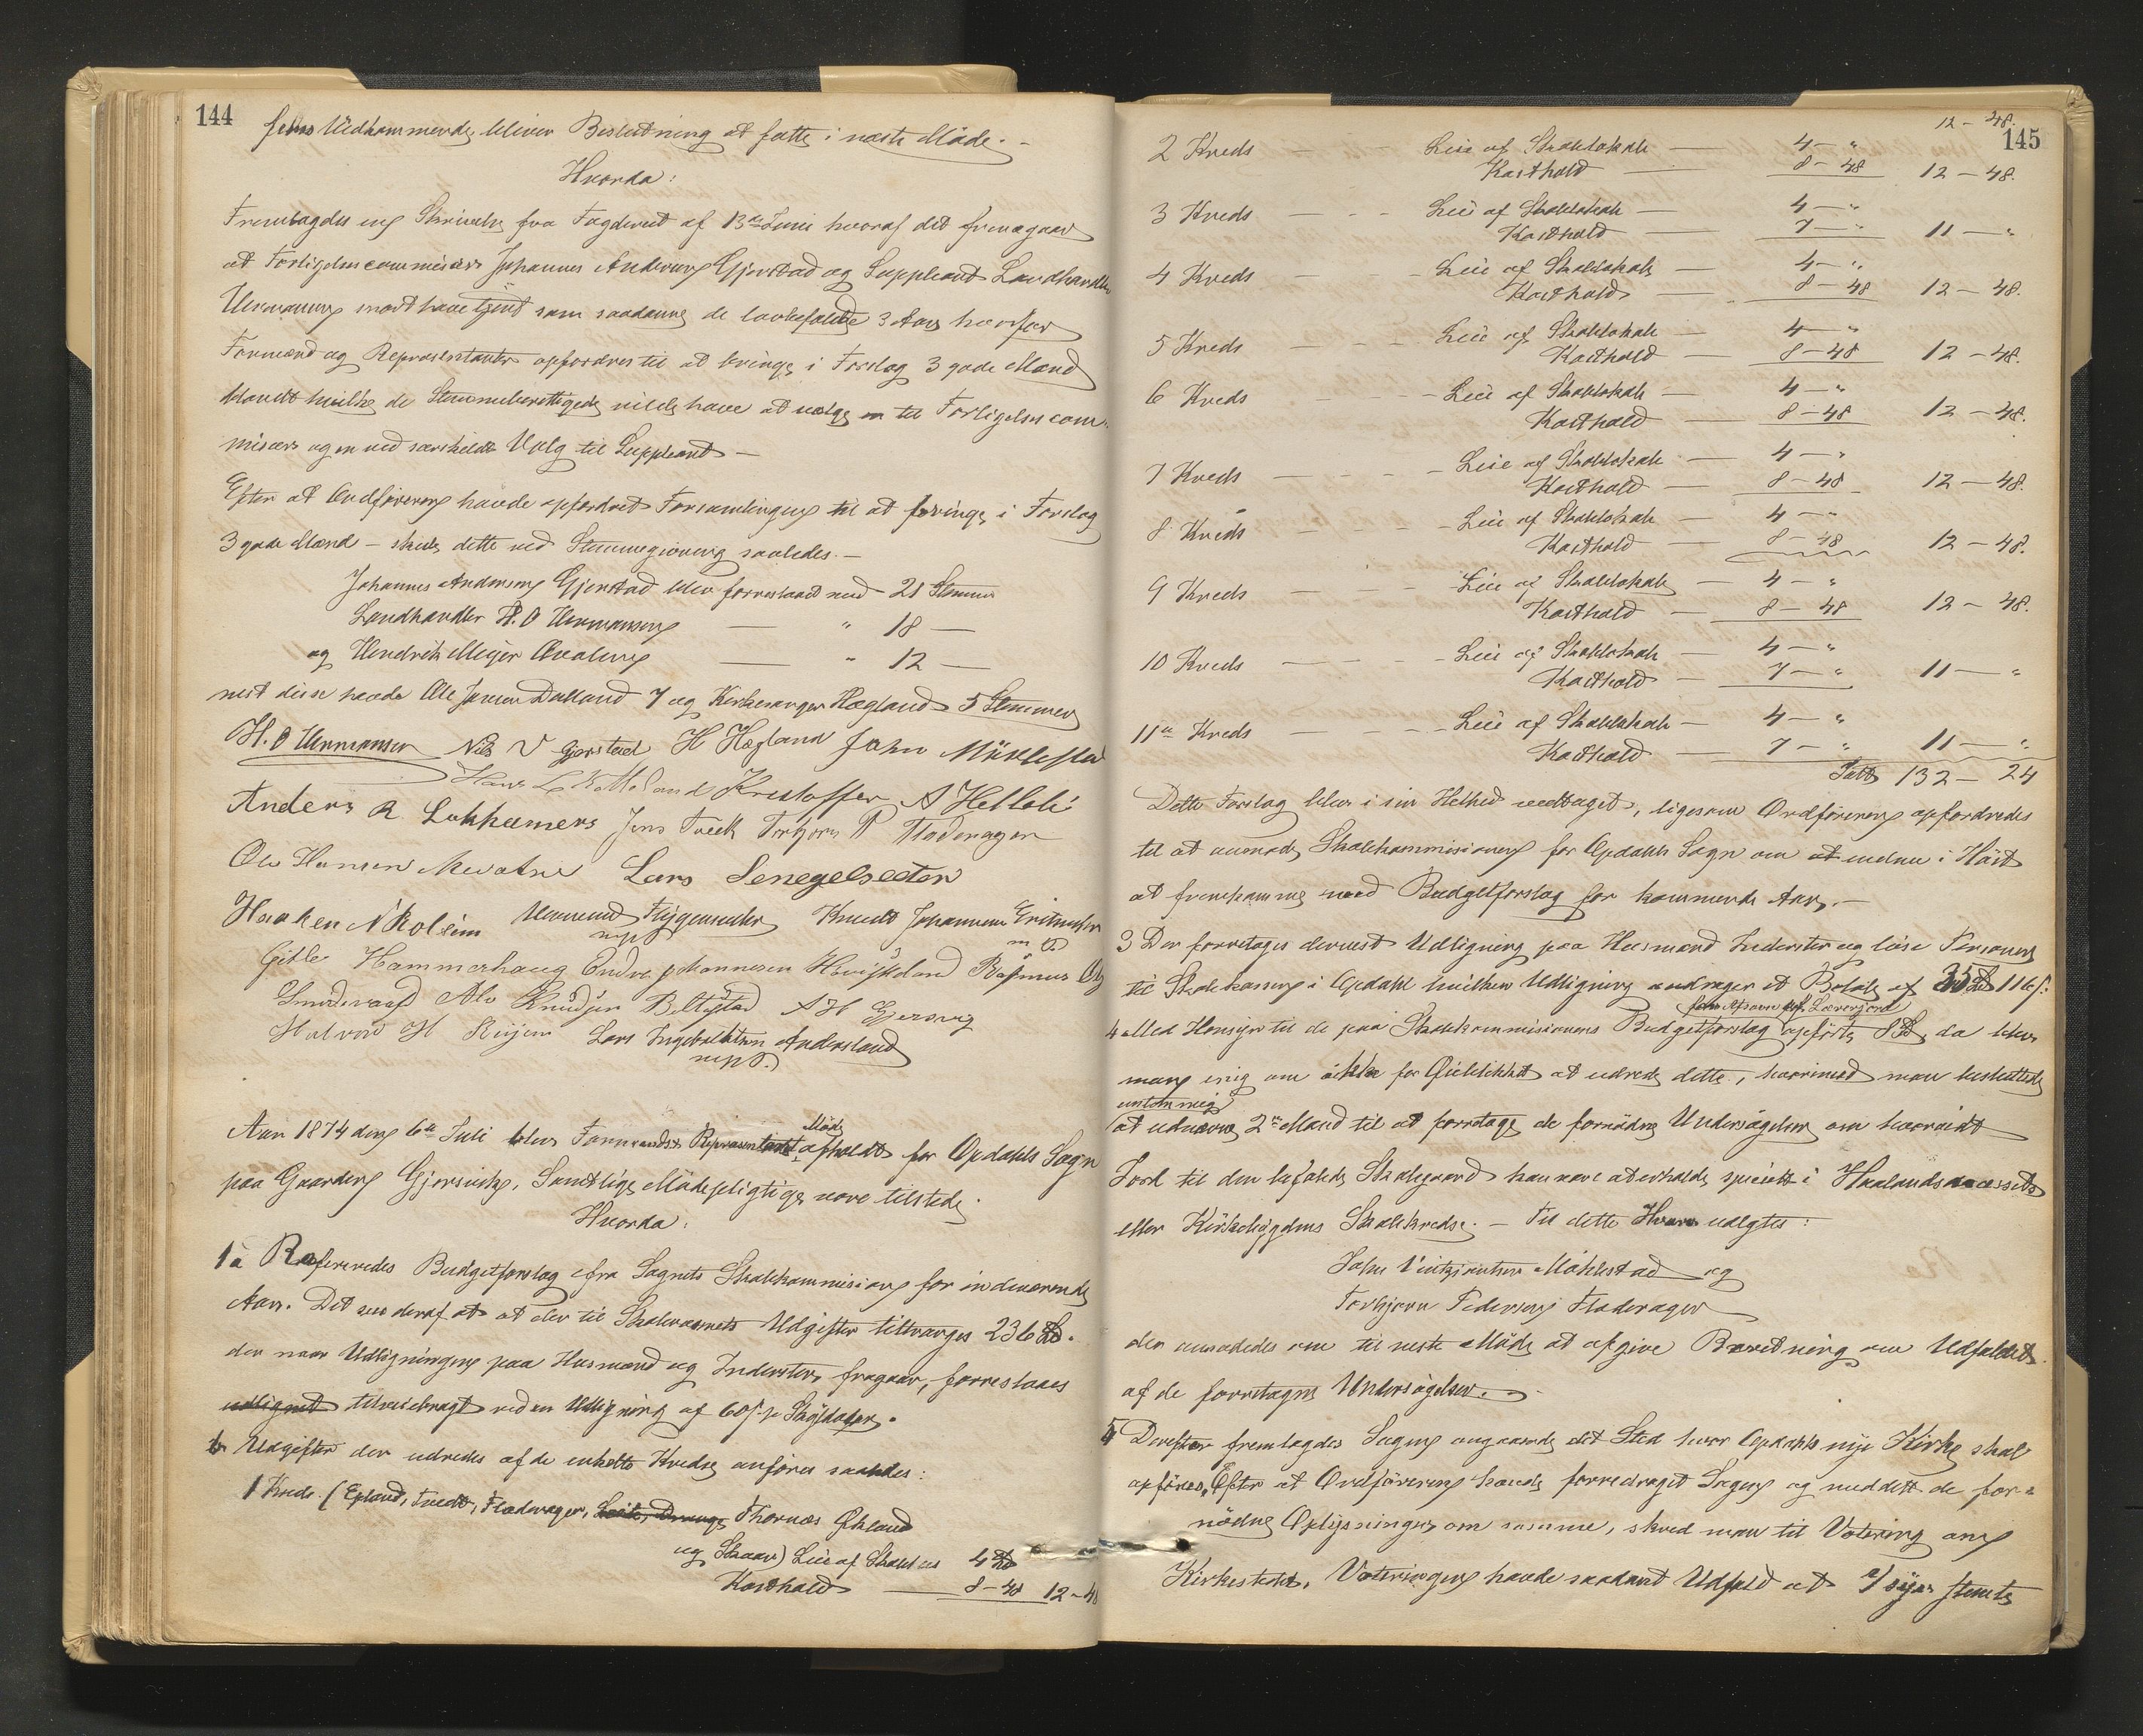 144
Vedkommende bliver Beslutning at fatte i næste Møde. -
Hvorda:
Fremlagdes en Skrivelse fra Fogderiet af 13de Juni hvoraf det fremgaar
at Forligelsescommisær Johannes Andersen Gjerstad og Suppleant Landhandler
Hermansen snart have tjent som saadanne de lovbefalede 3 Aar hvorfor
Formænd og Repræsentanter opfordres til at bringe i Forslag 3 gode Mænd
blandt hvilke de Stemmeberettigede vilde have at vælge en til Forligelsescom-
misær og en ved særskildt Valg til Suppleant -
Efter at Ordføreren havde opfordret Forsamlingen til at bringe i Forslag
3 gode Mænd - skede dette ved Stemmegivning saaledes. -
Johannes Andersen Gjerstad blev foreslaaet med 21 Stemmer
Landhandler H. O Hermansen — " 18 —
og Hendrik Meyer — " 12 —
nest disse havde Ole Jensen Dalland 7 og Kirkesanger Hægland 5 Stemmer
H. O Hermansen Nils V Gjerstad H Hægland John Müklestad
Hans L Kristoffer A Helleli
Anders R. Lukkamers Jens Tvedt Torbjørn P Fladeragar
Ole Hansen Lars Senegelseter
Haaken N Roleim Knudt Johannesen
rept
Gitle Hammerhaug Endre Johannesen Rasmus
Knudsen A H Gjersvig
Halvor H Lars Ingebrektsen Andersland
m p P.
Aar 1874 den 6te Juli blev Formands & Repræsentant Møde afholdt for Opdahls Sogn
paa Gaarden Gjersvik, Samtlige Mødepligtige vare tilstede.
Hvorda:
1 a Refereredes Budgetforslag fra Sognets Skolekommision for indeværende
Aar. Det saaes deraf at der til Skolevæsnets Udgifter tiltrænges 236 Spd.
der naar Udligningen paa Husmænd og Inderster fragaar, forreslaaes
udlignet tilveiebragt ved en Udligning af 60 s. pr Skylddaler.
b Udgifter der udredes af de enkelte Kredse anføres saaledes:
1 Kreds. (Epland, Tvedt, Fladerager, Thornæs Økland
og Skaar) Leie af Skolehus 4 Spd
Kosthold — 8-48 12-48
145
12-48.
2 Kreds - - - Leie af Skolelokale — 4 - "
Kosthold — 8-48 12-48.
3 Kreds - - - Leie af Skolelokale — 4 - "
Kosthold — 7 - " 11 - "
4 Kreds - - - Leie af Skolelokale — 4 - "
Kosthold — 8-48 12-48.
5 Kreds - - - Leie af Skolelokale — 4 - "
Kosthold — 8-48 12-48.
6 Kreds - - - Leie af Skolelokale — 4 - "
Kosthold — 8-48 12-48.
7 Kreds - - - Leie af Skolelokale — 4 - "
Kosthold — 8-48 12-48.
8 Kreds - - - Leie af Skolelokale — 4 - "
Kosthold — 8-48 12-48.
9 Kreds - - - Leie af Skolelokale — 4 - "
Kosthold — 8-48 12-48.
10 Kreds - - - Leie af Skolelokale — 4 - "
Kosthold — 7 - " 11 - "
11te Kreds - - - Leie af Skolelokale — 4 - "
Kosthold — 7 - " 11 - "
132-24
Dette Forslag blev i sin Helhed vedtaget, ligesom Ordføreren opfordredes
til at anmode Skolekommisionen for Opdahls Sogn om at endnu i Høst
at fremkomme med Budgetforslag for kommende Aar. -
3 Der foretages dernest Udligning paa Husmænd Inderster og løse Personer
til Skolekassen i Opdahl hvilken Udligning andrager et Beløb af 35 Spd 116 s.
for Afsavn af Lærerjord
4 Med Hensyn til de paa Skolekommisionens Budgetforslag opførte 8 Spd, da blev
man enig om ikke for Øieblikket at udrede dette, hvorimod man besluttede
at udnævne 2de Mænd til at foretage de fornødne Undersøgelser om hvorvidt
Jord til den befalede Skolegaard kan være at erholde, specielt i Haalandsnæssets
eller Kirkebygdens Skolekredse. - Til dette Hverv valgtes:
John Møklestad og
Torbjørn Pedersen Fladerager
der anmodedes om til neste Møde at afgive Beretning om Udfaldet
af de foretagne Undersøgelser. -
5 Derefter fremlagdes Sagen angaaende det Sted hvor Opdahls nye Kirke skal
opføres, Efter at Ordføreren havde foredraget Sagen og meddelt de for-
nødne Oplysninger om samme, skred man til Votering om
Kirkestedet. Voteringen havde saadant Udfald at a/ syv stemte